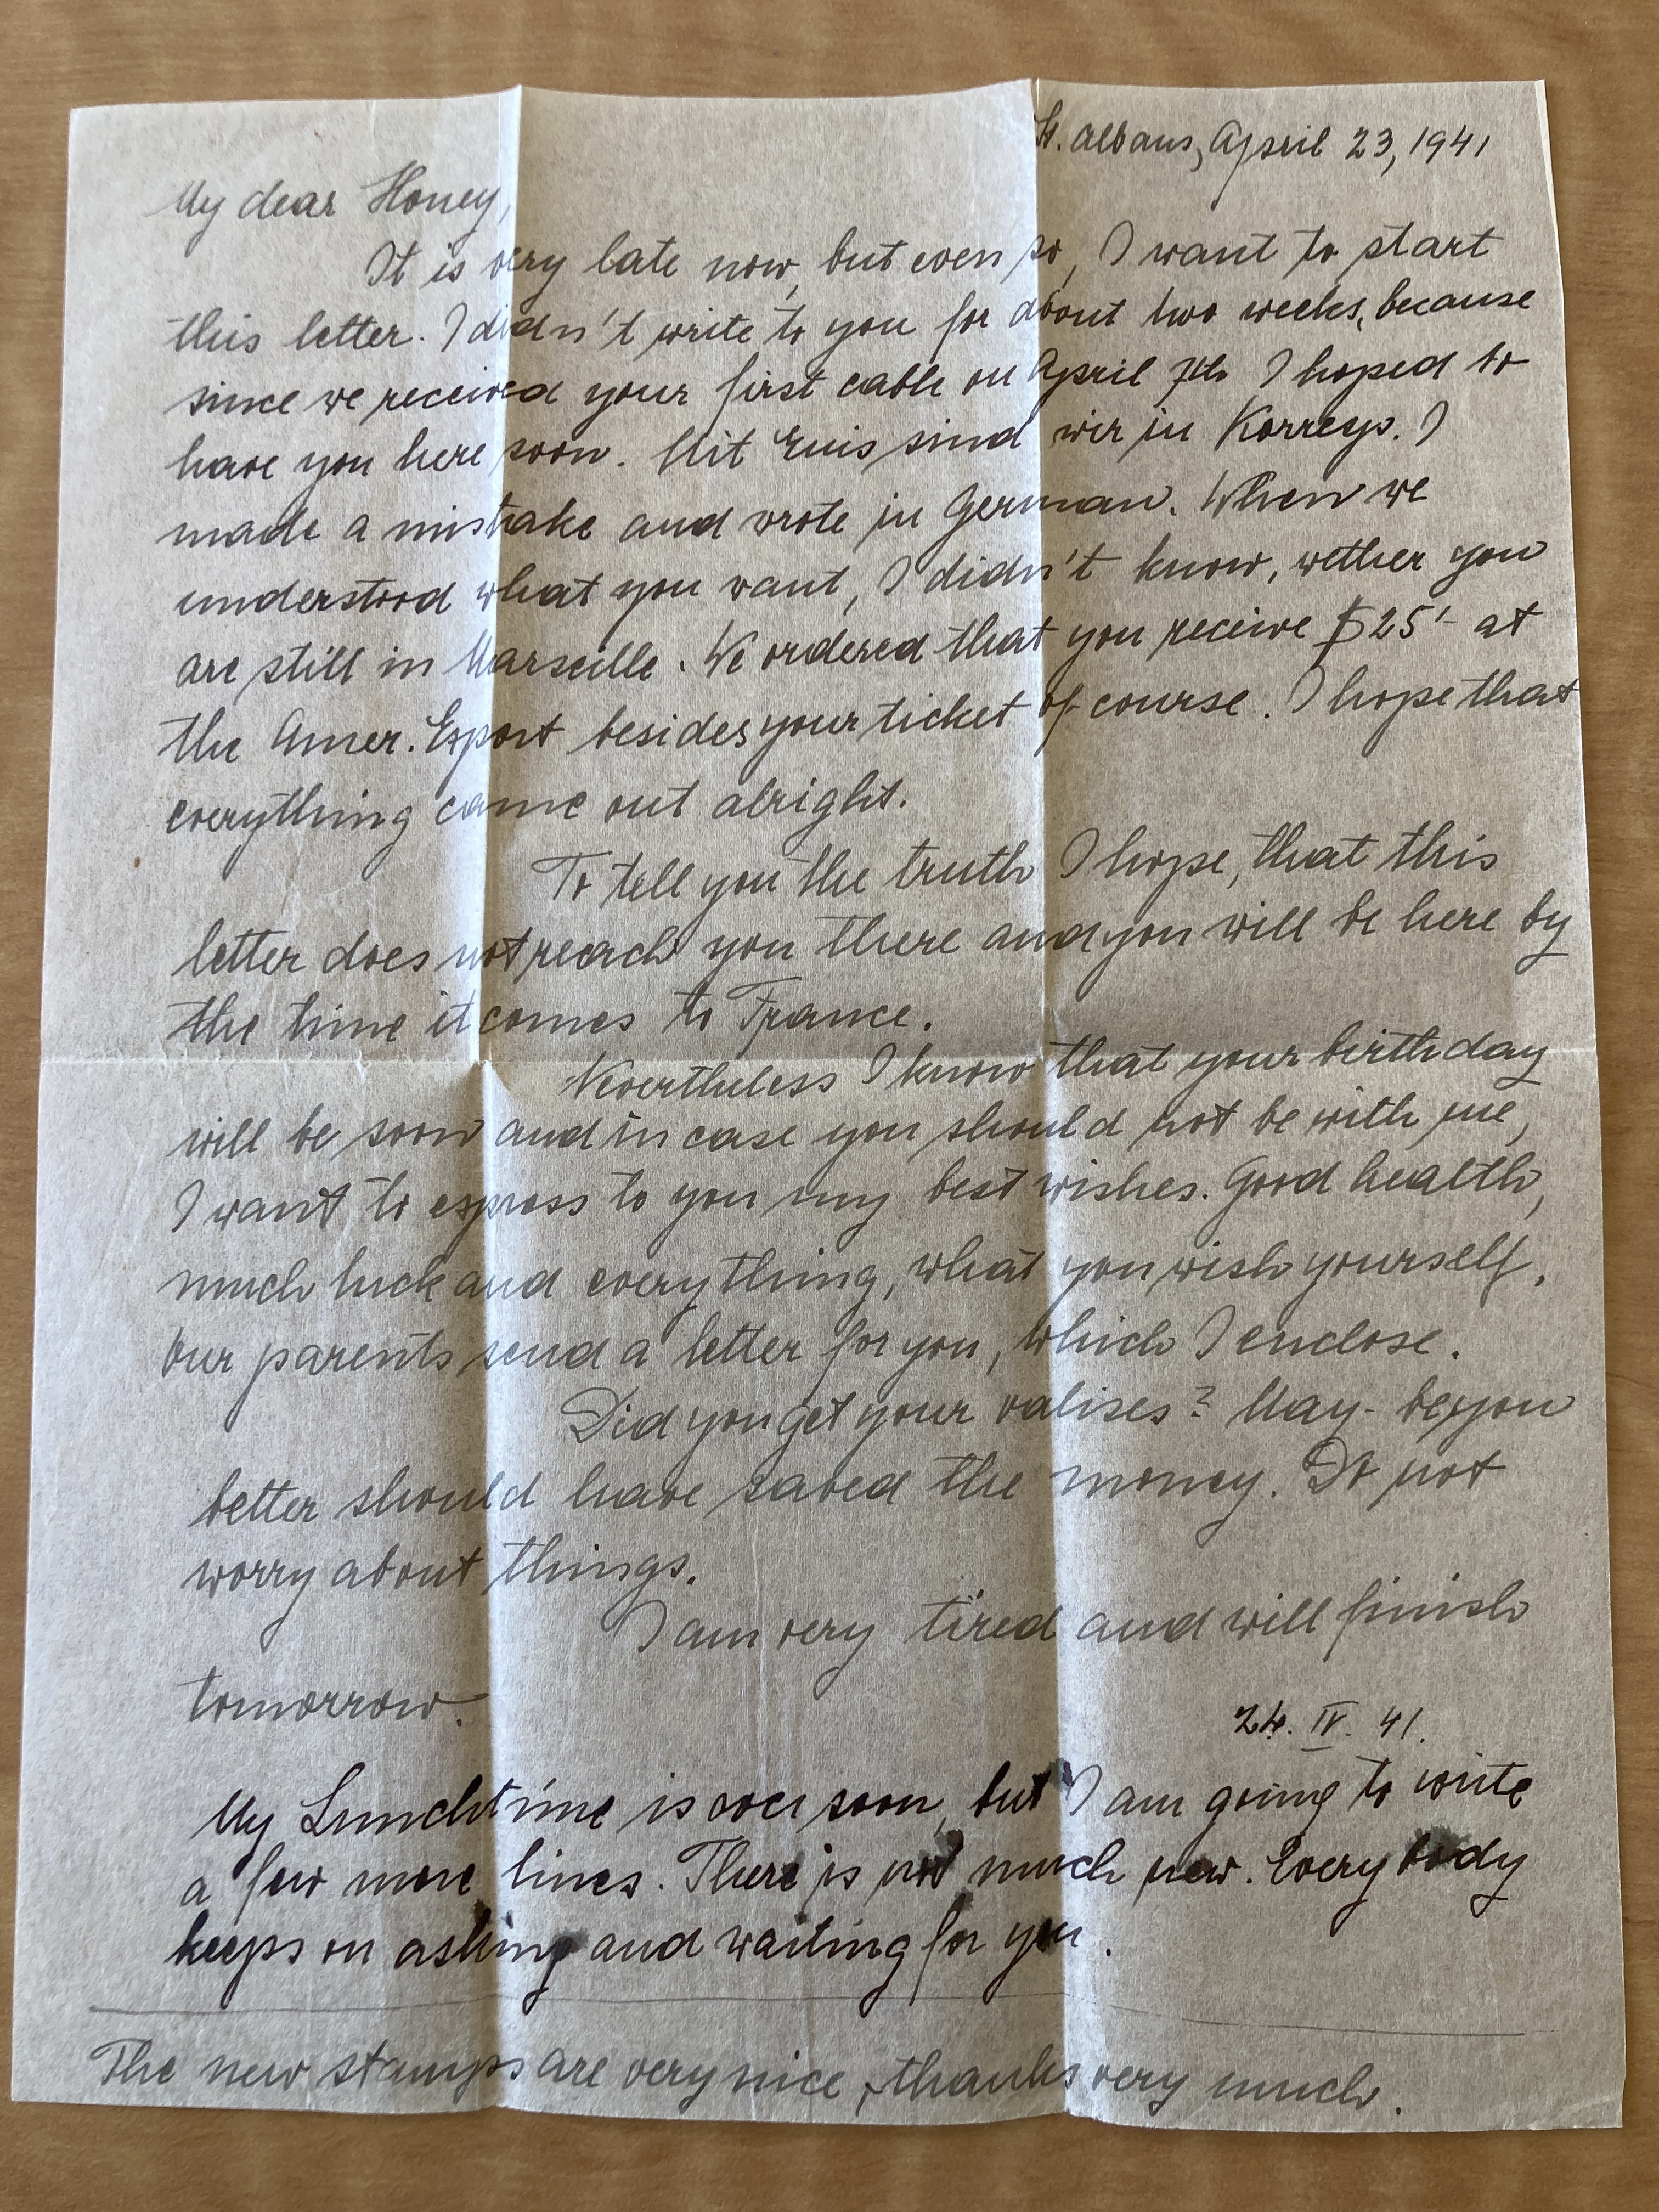 St. Albans, April 23, 1941
My dear Honey,
It is very late now, but even so, I want to start
this letter. I didn't write to you for about two weeks, because
since we received your first cable on April 7th I hoped to
have you here soon. Mit sind wir in Korresp. I
made a mistake and wrote in German. When we
understood what you want, I didn't know, wether you
are still in Marseille. We ordered that you receive $25'- at
the Amer. Export besides your ticket of course. I hope that
everything came out alright.
To tell you the truth I hope, that this
letter does not reach you there and you will be here by
the time it comes to France.
Nevertheless I know that your birthday
will be soon and in case you should not be with me,
I want to express to you my best wishes. Good health,
much luck and everything, what you wish yourself.
Our parents send a letter for you, which I enclose.
Did you get your valises? May-be, you
better should have saved the money. Do not
worry about things.
I am very tired and will finish
tomorrow.
24. IV. 41.
My Lunchtime is over soon, but I am going to write
a few more lines. There is not much new. Everybody
keeps on asking and waiting for you.
The new stamps are very nice, thanks very much.